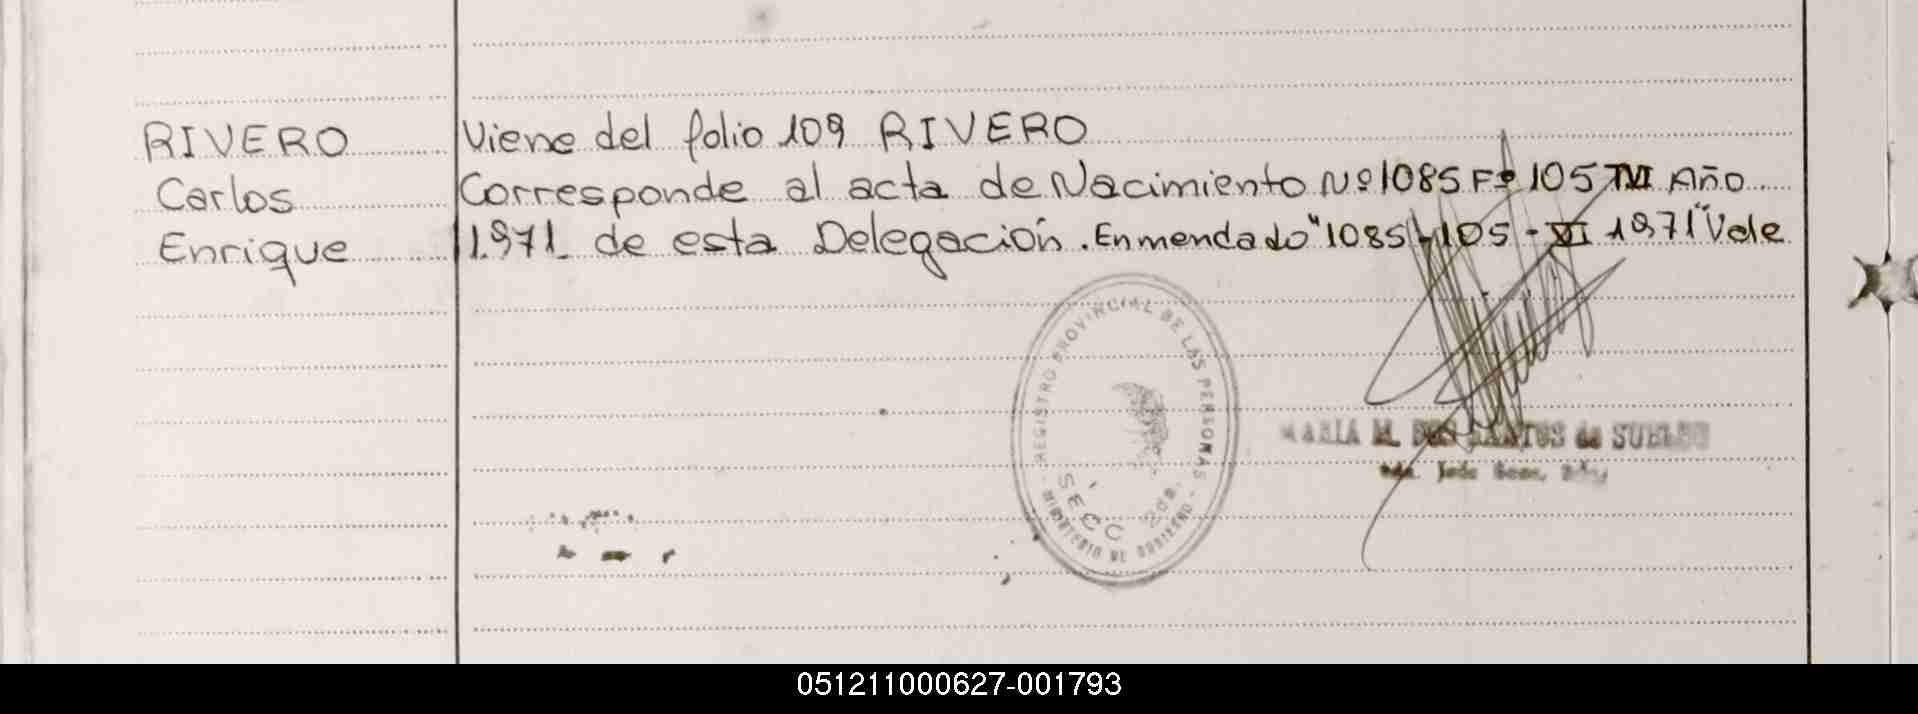 RIVERO
Carlos
Enrique
Viene del folio 109 RIVERO
Corresponde al acta de Nacimiento Nº 1085 Fº 105 TVI Año
1.971 de esta Delegación. Enmendado "1085-105-VI 1971" Vale
REGISTRO PROVINCIAL DE LAS PERSONAS
MINISTERIO DE GOBIERNO
SECC 2da.
MARIA M. SANTOS de
051211000627-001793